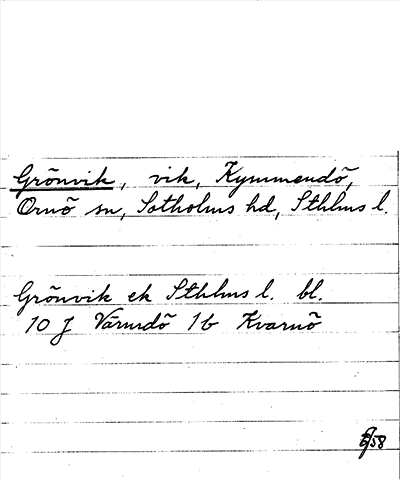 Grönvik, vik, Kymmendö,
Ornö sn, Sotholms hd, Sthlms l.
Grönvik ek Sthlms l. bl.
10 J Värmdö 1b Kvarnö
/58